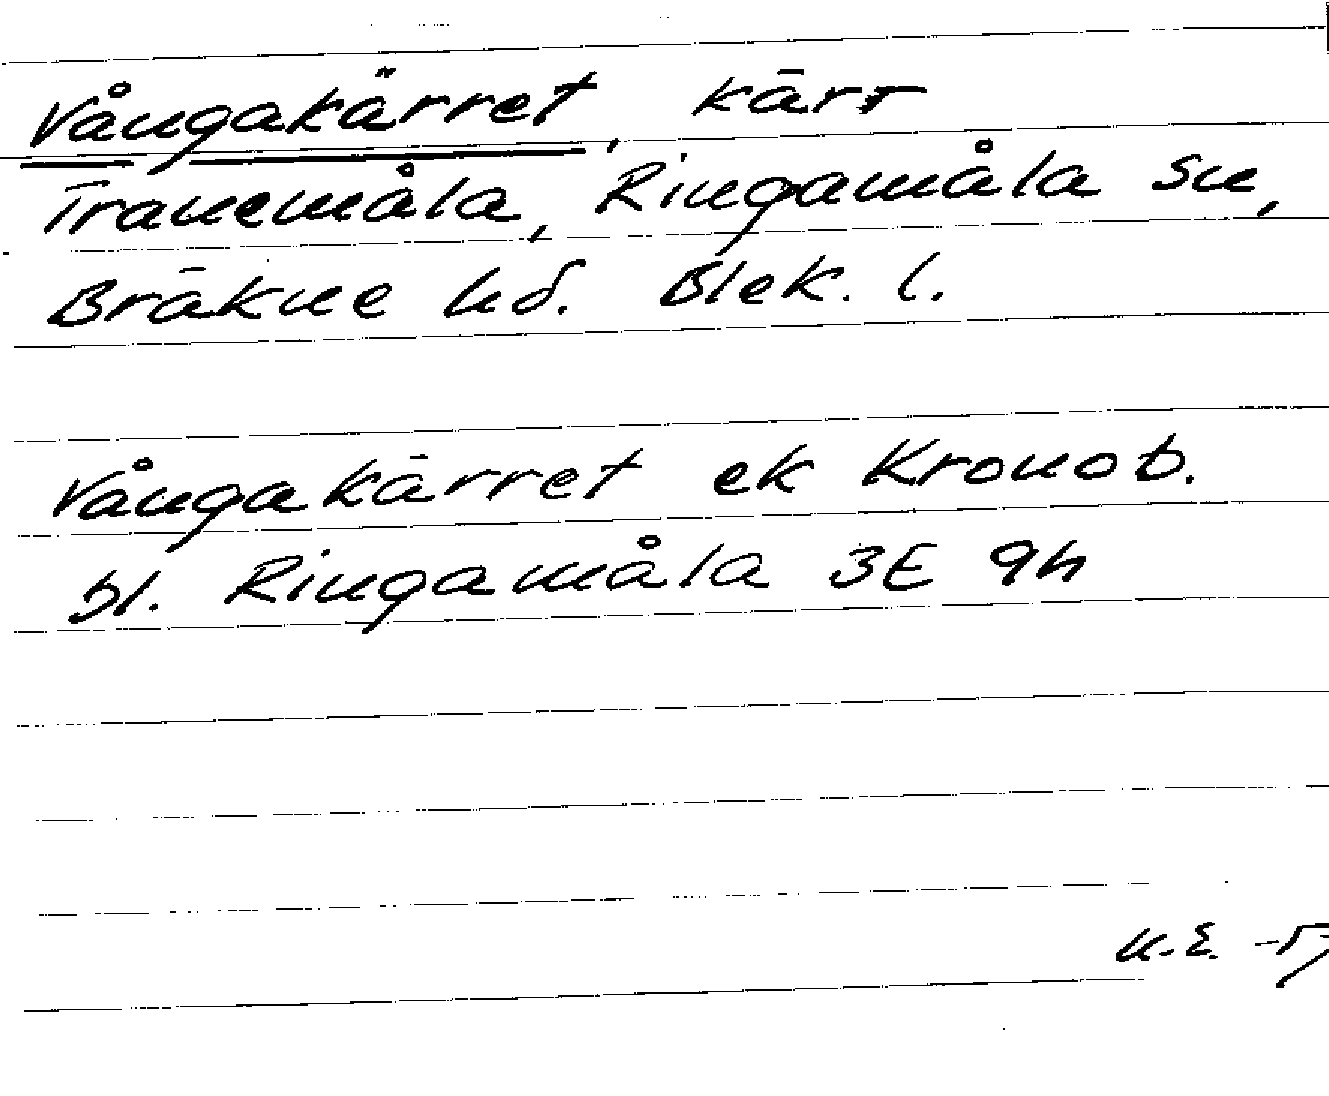 Vångakärret, kärr
Tranemåla, Ringamåla sn,
Bräkne hd. Blek. l.
Vångakärret ek Kronob.
bl. Ringamåla 3E 9h